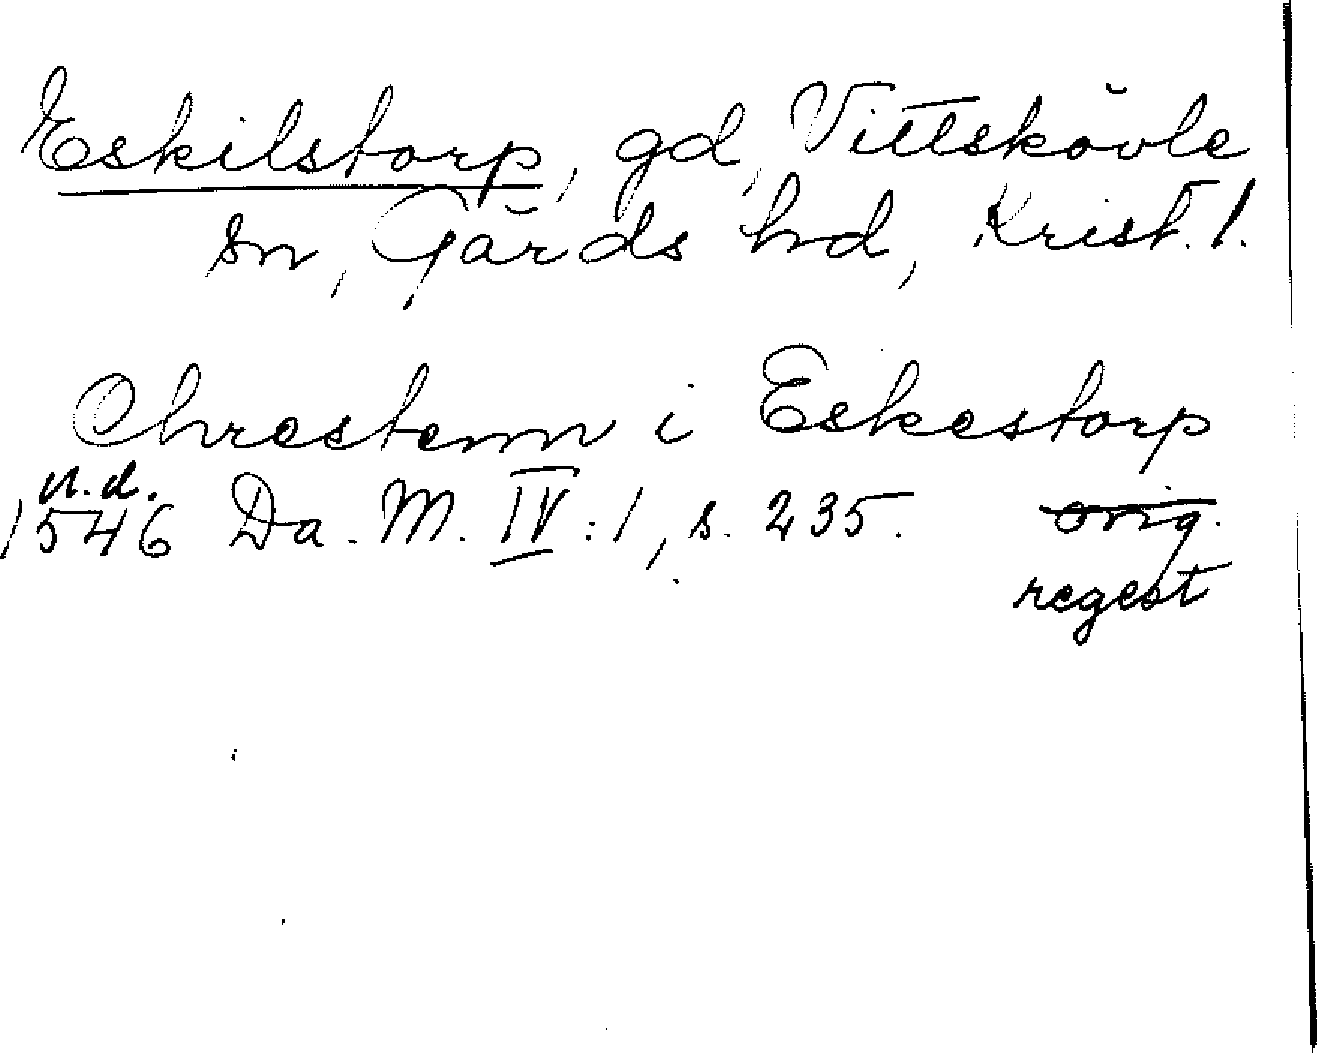 Eskilstorp, gd, Vittskövle
sn, Gärds hd, Krist. l.
Chrestenn i Eskestorp
u.d.
1546 Da. M. IV:1, s. 235. orig.
regest